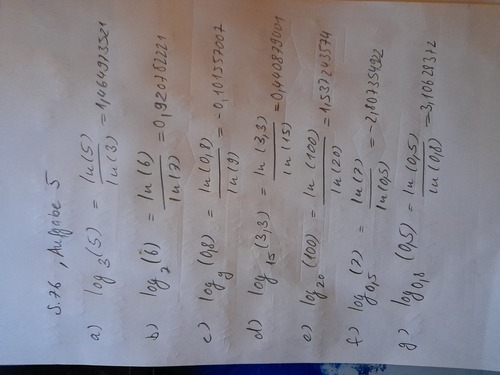 S. 76, Aufgabe 5
a) log₃(5) = ln(5)/ln(3) = 1,464973521
b) log₇(6) = ln(6)/ln(7) = 0,920782221
c) log₉(0,8) = ln(0,8)/ln(9) = -0,101557007
d) log₁₅(3,3) = ln(3,3)/ln(15) = 0,440879001
e) log₂₀(100) = ln(100)/ln(20) = 1,537243574
f) log₀,₅(7) = ln(7)/ln(0,5) = -2,807354922
g) log₀,₈(0,5) = ln(0,5)/ln(0,8) = 3,10628372